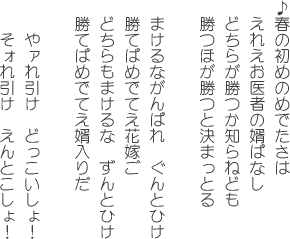 ♪春の初めのめでたさは
えれえお医者の婿ばなし
どちらが勝つか知らねども
勝つほが勝つと決まっとる
まけるながんばれ　ぐんとひけ
勝てばめでてえ花嫁ご
どちらもまけるな　ずんとひけ
勝てばめでてえ婿入りだ
やァれ引け　どっこいしょ！
そォれ引け　えんとこしょ！